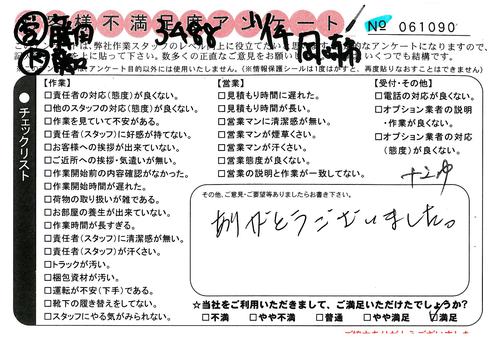 お客様不満足度アンケート No 061090
3488
いつでも結構です。
当アンケート目的以外には使用いたしません。(※情報保護シールは1度はがすと、再度貼りなおすことはできません)
チェックリスト
【作業】
□責任者の対応(態度)が良くない。
□他のスタッフの対応(態度)が良くない。
□作業を見ていて不安がある。
□責任者(スタッフ)に好感が持てない。
□お客様への挨拶が出来ていない。
□ご近所への挨拶・気遣いが無い。
□作業開始前の内容確認がなかった。
□作業開始時間が遅れた。
□荷物の取り扱いが雑である。
□お部屋の養生が出来ていない。
□作業時間が長すぎる。
□責任者(スタッフ)に清潔感が無い。
□責任者(スタッフ)が汗くさい。
□トラックが汚い。
□梱包資材が汚い。
□運転が不安(下手)である。
□靴下の履き替えをしてない。
□スタッフにやる気がみられない。
【営業】
□見積もり時間に遅れた。
□見積もり時間が長い。
□営業マンに清潔感が無い。
□営業マンが煙草くさい。
□営業マンが汗くさい。
□営業態度が良くない。
□営業の説明と作業が一致してない。
【受付・その他】
□電話の対応が良くない。
□オプション業者の説明
・作業が良くない。
□オプション業者の対応
(態度)が良くない。
その他、ご意見・ご要望等ありましたらお書き下さい。
ありがとうございました。
☆当社をご利用いただきまして、ご満足いただけたでしょうか?
□不満 □やや不満 □普通 □やや満足 ☑満足